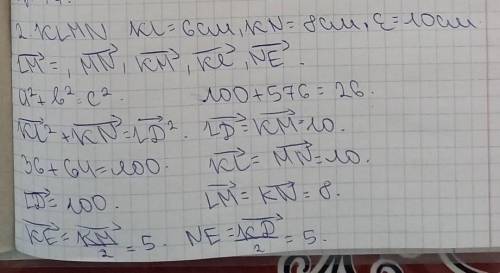 2. KLMN KL = 6см, KN = 8см, E = 10см
LM = , MN, KM, KL, NE.
a²+b²=c². 100+576=26.
KL²+KN=LD². LD=KM=10.
36+64=100. KL=MN=10.
LD=100. LM=KN=8.
KE=KM/2=5. NE=KD/2=5.